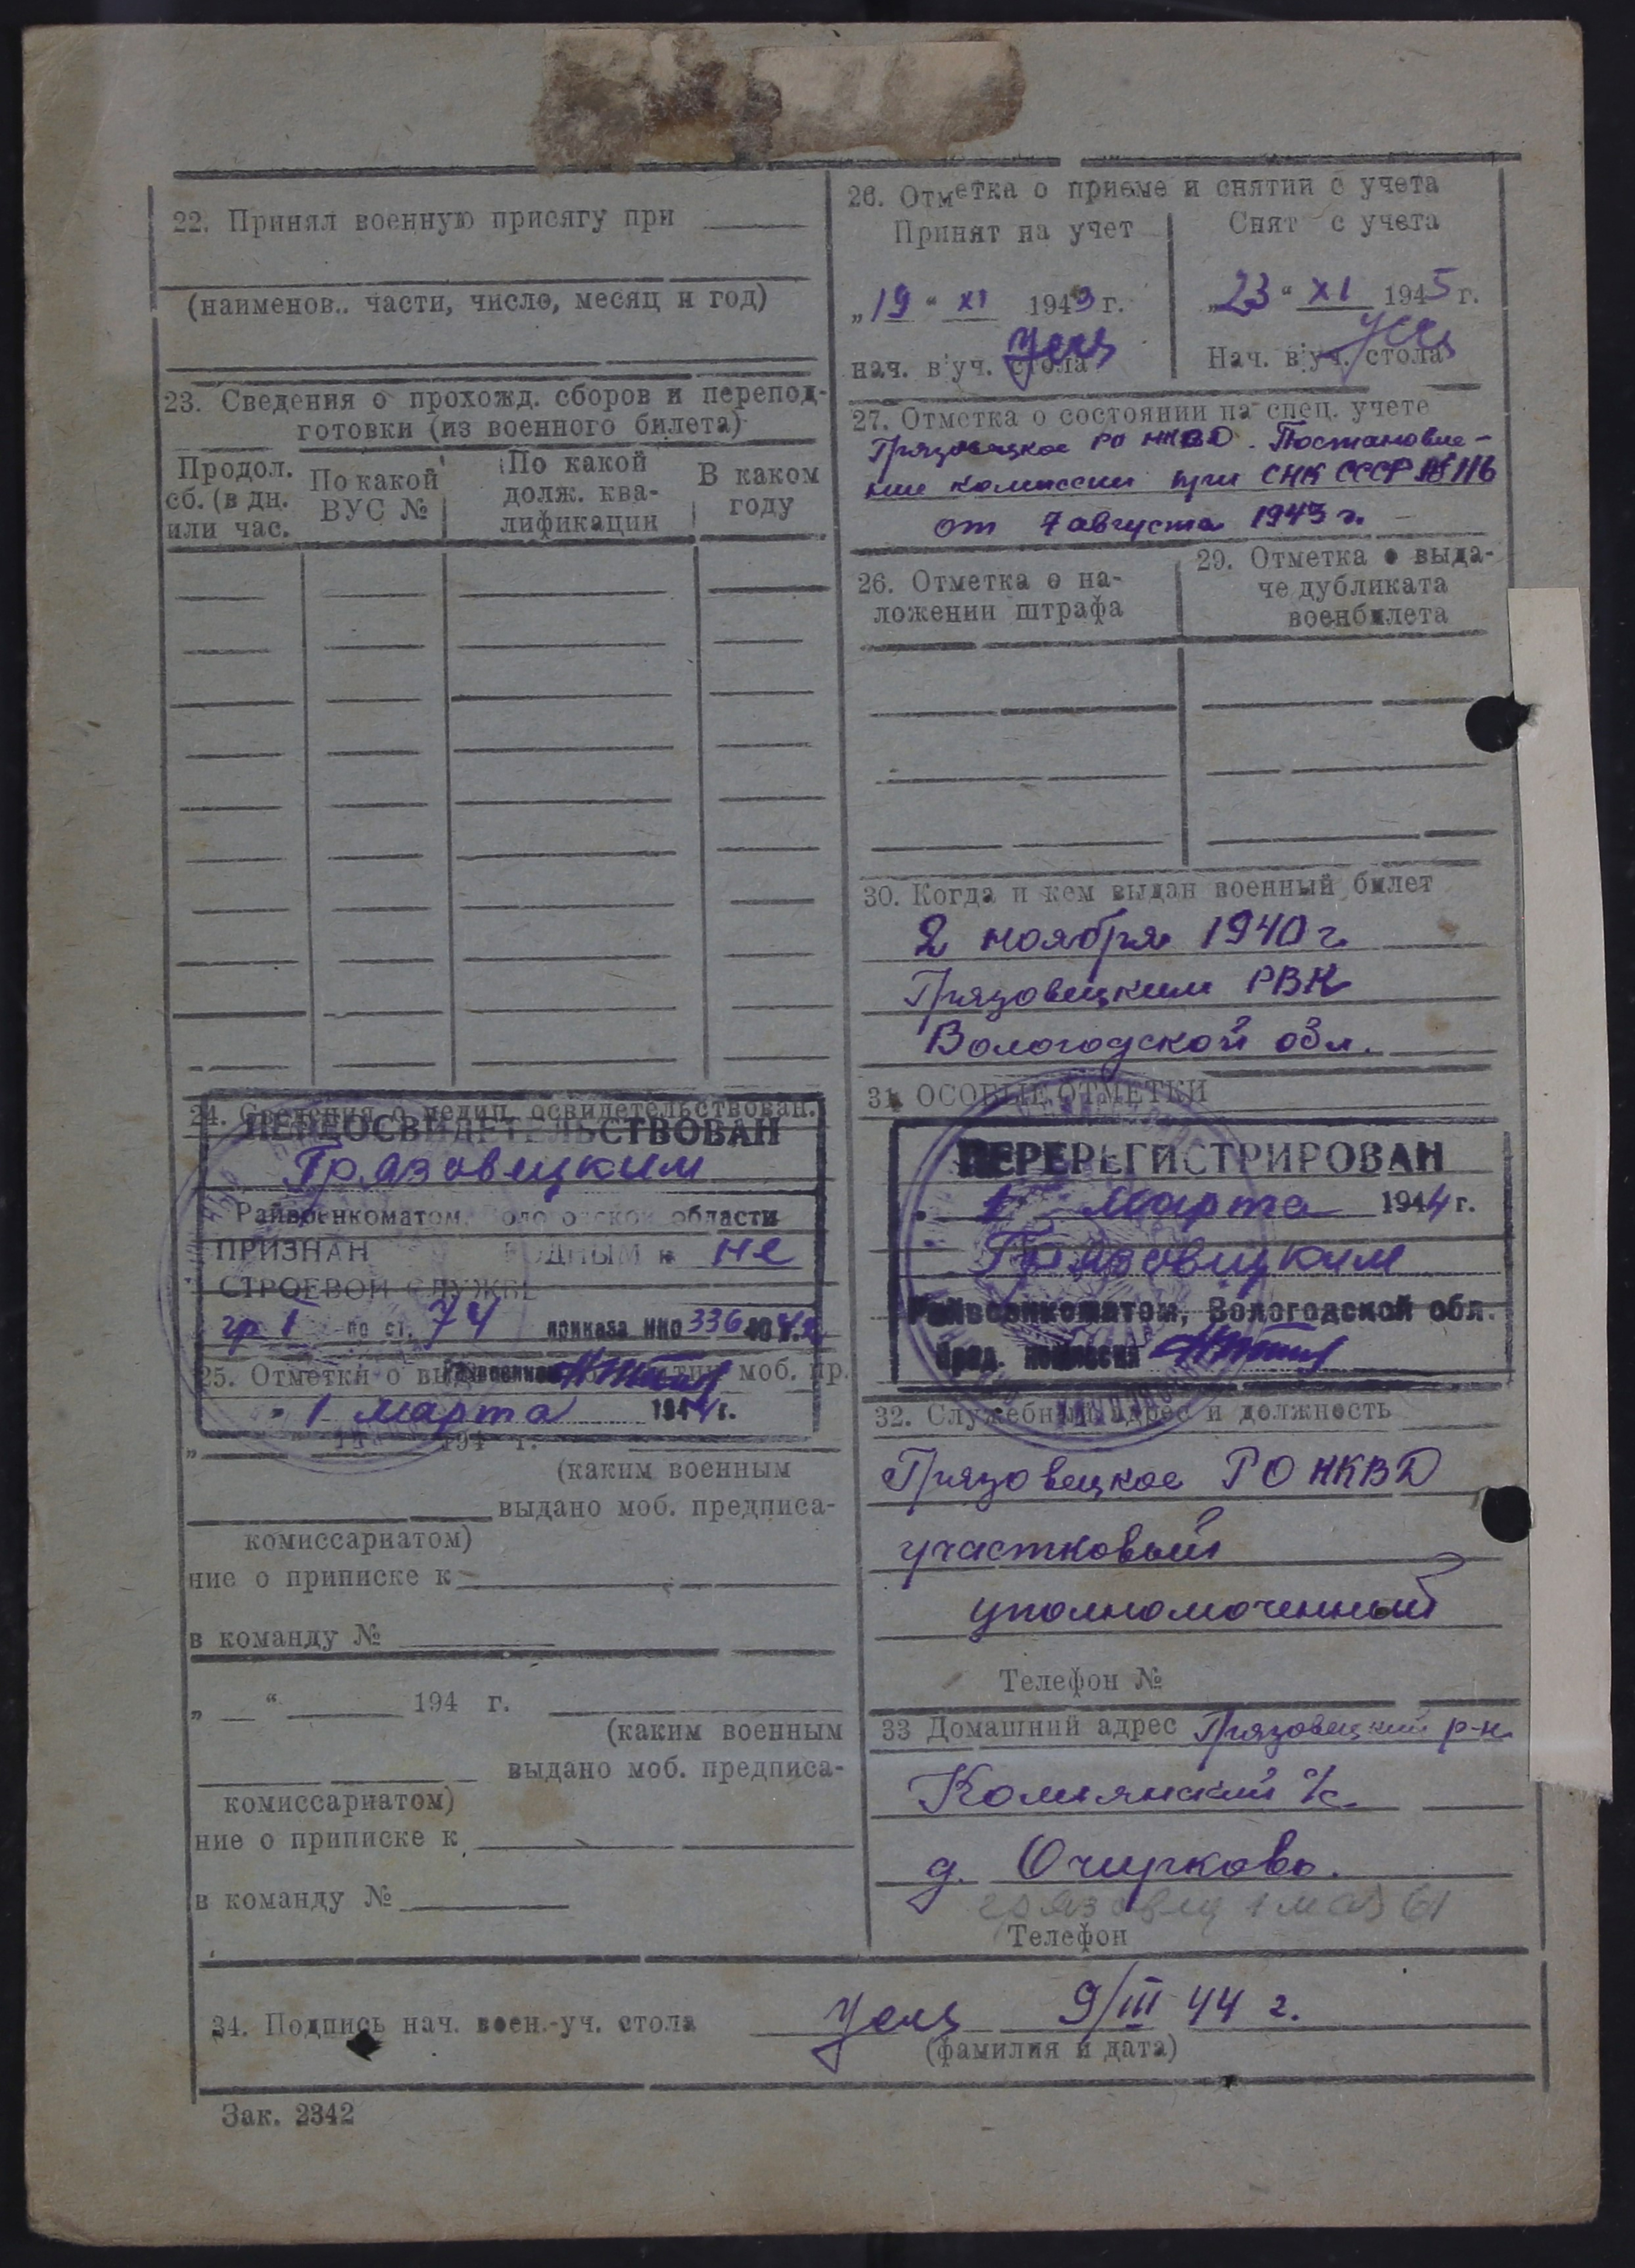 22. Принял военную присягу при
(наименов.. части, число, месяц и год)
23. Сведения о прохожд. сборов и перепод-
готовки (из военного билета)
Продол.
сб. (в дн.
или час.
По какой
ВУС №
По какой
долж. ква-
лификации
В каком
году
24. Сведения о медиц. освидетельствован.
ПЕРЕОСВИДЕТЕЛЬСТВОВАН
Грязовецким
Райвоенкоматом, Вологодской области
ПРИЗНАН ГОДНЫМ к не
СТРОЕВОЙ СЛУЖБЕ
гр I по ст. 74 приказа НКО 336
25. Отметки о моб. пр.
" 1 марта 1944 г.
" 194 г.
(каким военным
выдано моб. предписа-
комиссариатом)
ние о приписке к
в команду №
„ “ 194 г.
(каким военным
выдано моб. предписа-
комиссариатом)
ние о приписке к
в команду №
26. Отметка о приеме и снятии с учета
Принят на учет
„19“ XI 1943 г.
нач. в'уч. стола
Снят с учета
„23“ XI 1945 г.
Нач. в'уч. стола
27. Отметка о состоянии на спец. учете
Грязовецкое РО НКВД. Постановле-
ние комиссии при СНК СССР № 116
от 7 августа 1943 г.
26. Отметка о на-
ложении штрафа
29. Отметка о выда-
че дубликата
военбилета
30. Когда и кем выдан военный билет
2 ноября 1940 г.
Грязовецким РВК
Вологодской обл.
31. ОСОБЫЕ ОТМЕТКИ
ПЕРЕРЕГИСТРИРОВАН
1 марта 1944 г.
Грязовецким
Райвоенкоматом, Вологодской обл.
Пред. комиссии
32. Служебный адрес и должность
Грязовецкое РО НКВД
участковый
уполномоченный
Телефон №
33 Домашний адрес Грязовецкий р-н
Комьянский с/с.
д. Очирково.
грязовец 1 мая 61
Телефон
34. Подпись нач. воен.-уч. стола 9/III 44 г.
(фамилия и дата)
Зак. 2342